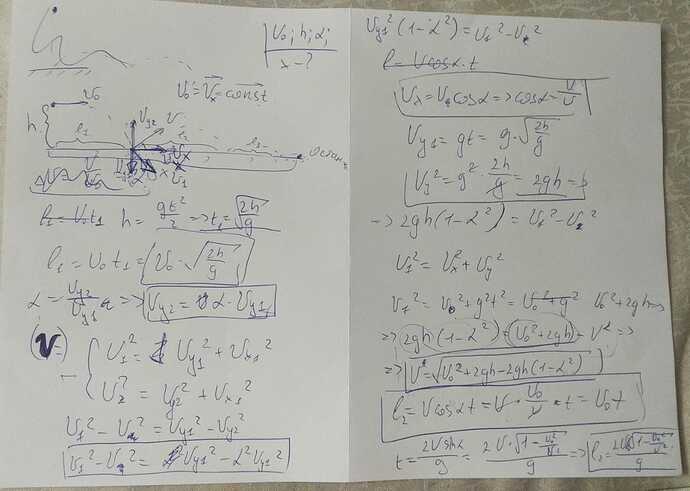 v₀; h; α;
x - ?
v₀ = v⃗ₓ = const
v₀
h
l₁
v_y2
v
l₂
l₃
v_x
v₁
l₁ = v₀t₁ h = gt²/2 => t₁ = √(2h/g)
l₁ = v₀ t₁ = v₀ · √(2h/g)
α = v_y2/v_y1 => v_y2 = α · v_y1
v₁² = v_y1² + v_x1²
v₂² = v_y2² + v_x1²
v₁² - v₂² = v_y1² - v_y2²
v₁² - v₂² = v_y1² - α² v_y1²
v_y1² (1 - α²) = v₁² - v₂²
l = v cos α · t
v_x = v cos α => cos α =
v_y1 = gt = g · √(2h/g)
v_y² = g² · 2h/g = 2gh
-> 2gh(1 - α²) = v₁² - v₂²
v₁² = v_x² + v_y²
v₁² = v₀² + g²t² = v₀² + g² v₀² + 2gh
=> 2gh(1 - α²) = v₀² + 2gh - v² =>
=> v = √(v₀² + 2gh - 2gh(1 - α²))
l₂ = v cos α t = v · v₀/v · t = v₀t
t = 2v sin α/g = 2v · √(1 - v₀²/v²)/g =>